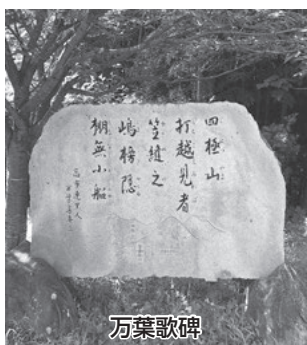 四極山
打越見者
笠縫之
嶋榜隠
棚無小船
万葉歌碑